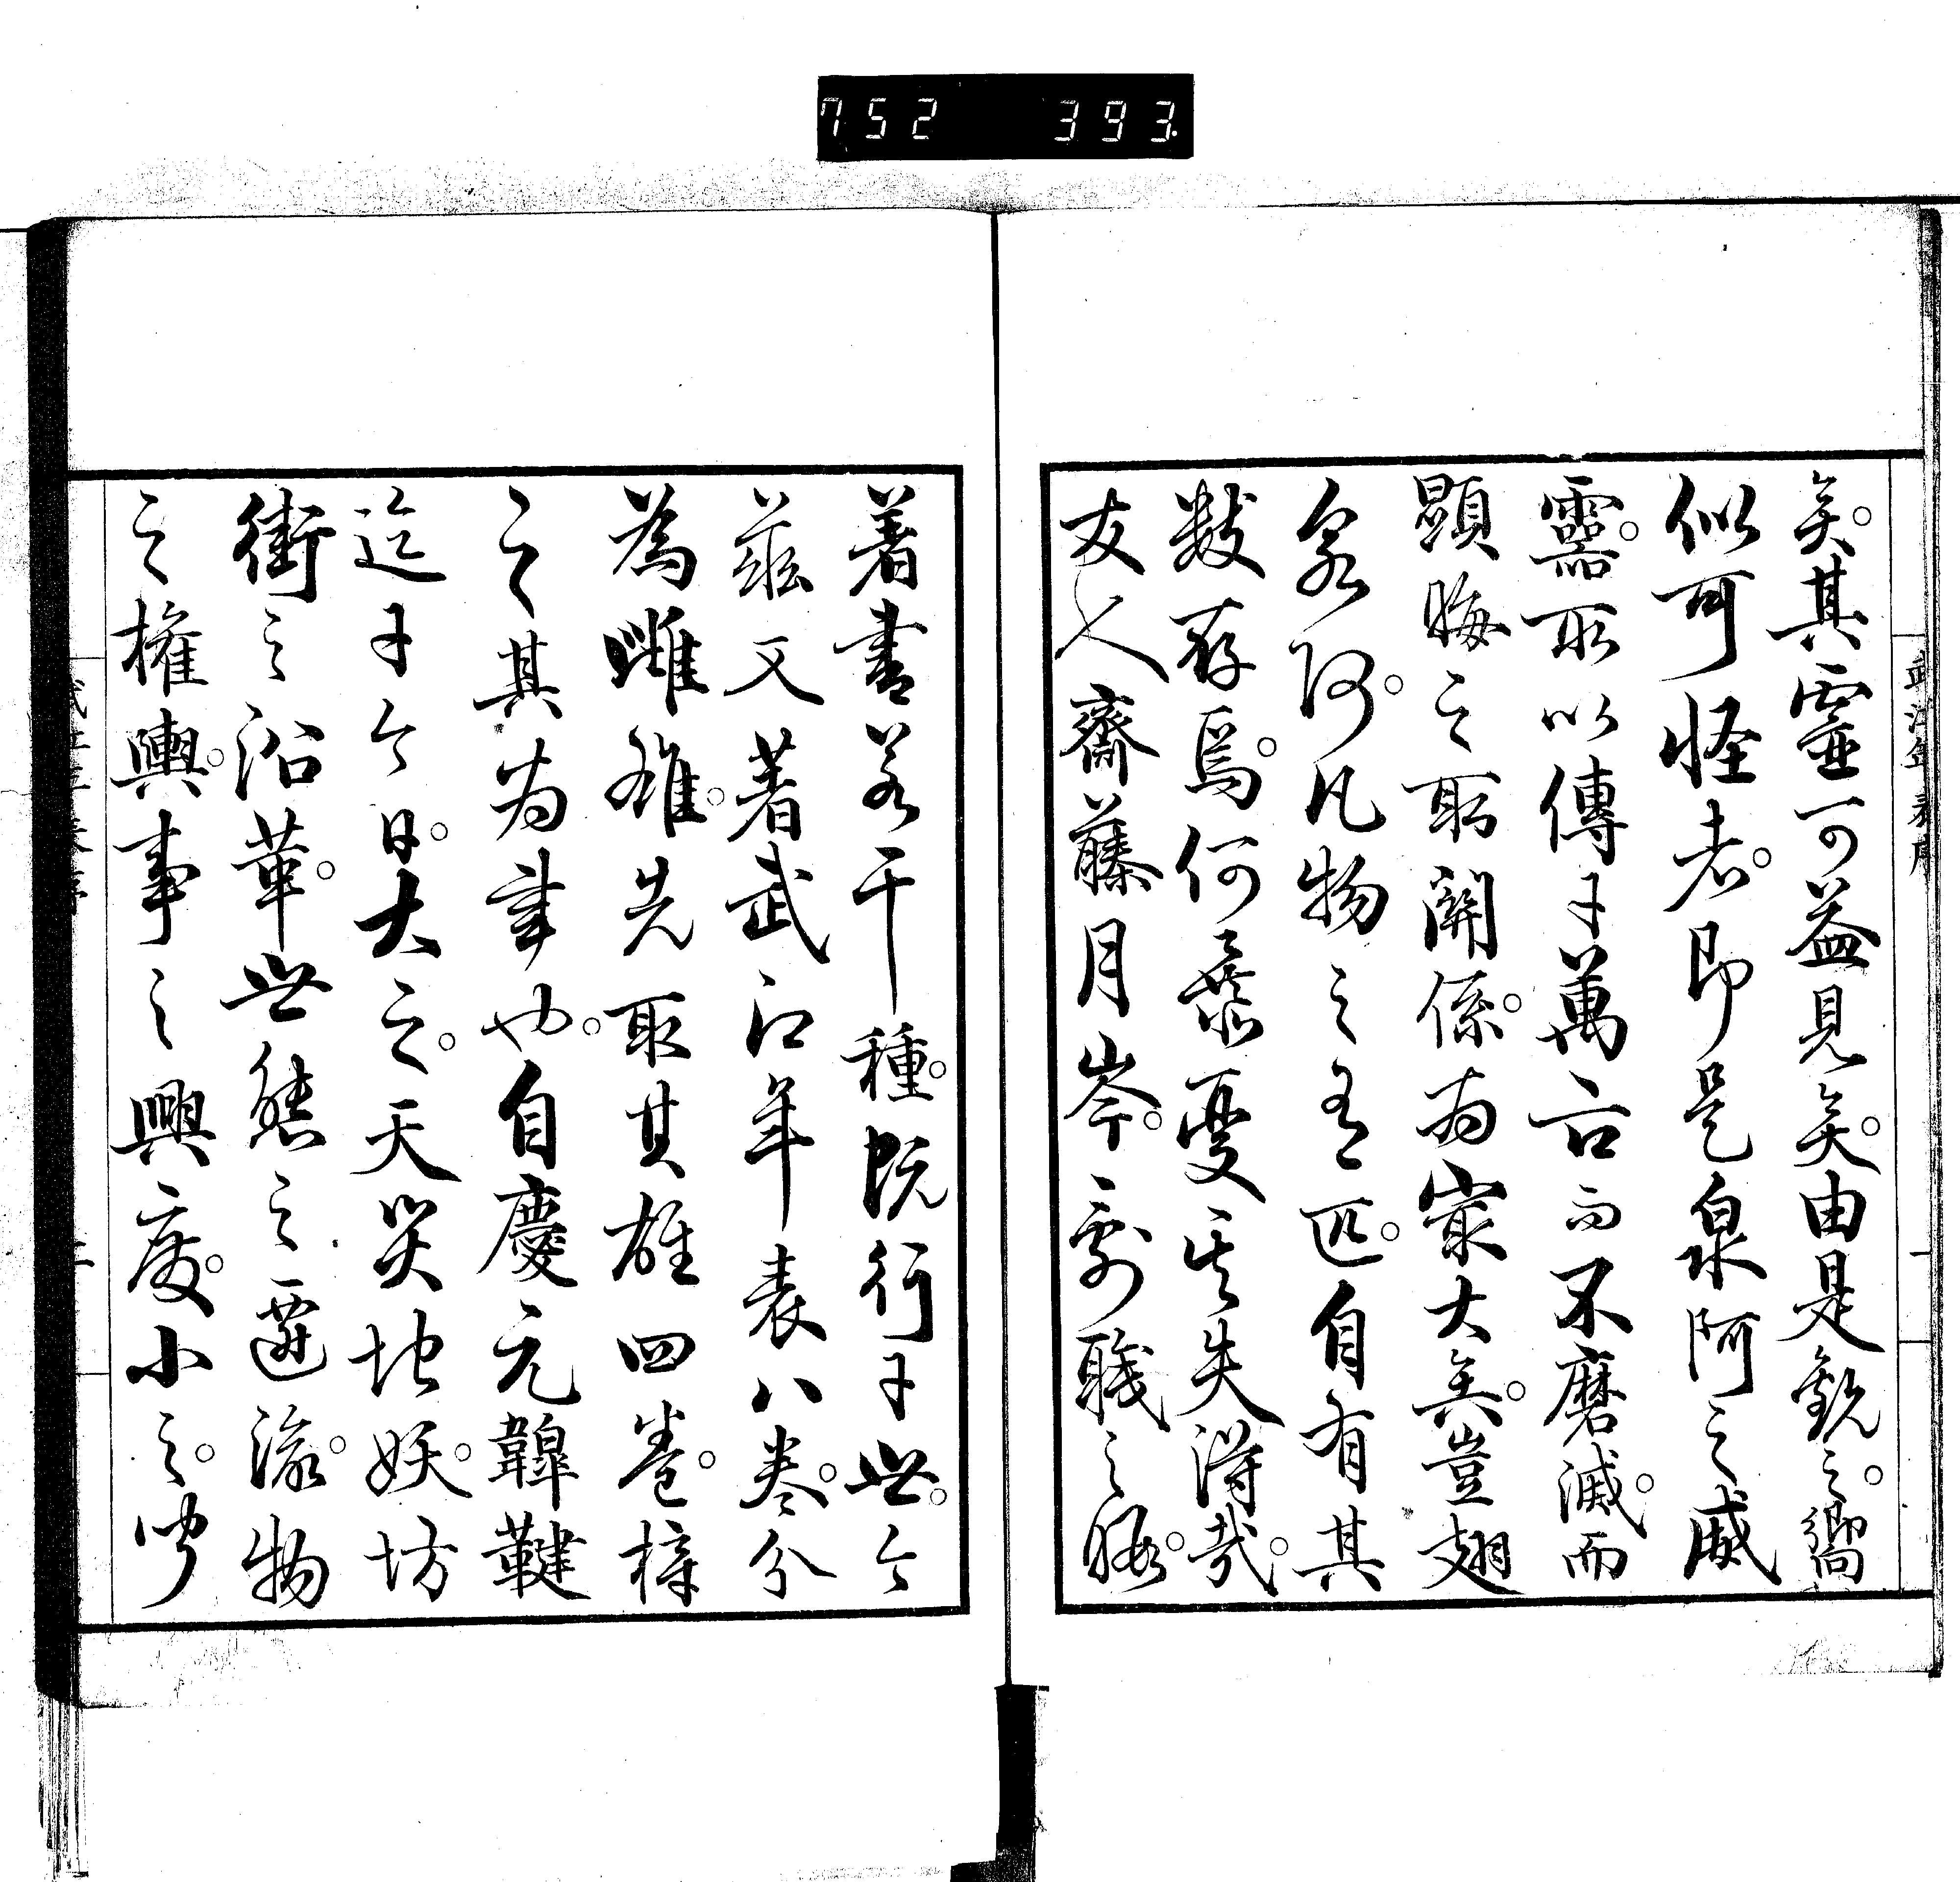 752 393
武江年表序
矣。其靈可益見矣。由是觀之。嚮
似可怪者。即是泉阿之威
靈。所以傳于萬古而不磨滅。而
顯晦之所關係。為最大矣。豈翅
泉阿。凡物之有匹。自有其
數存焉。何棄憂其失得哉。
友人齋藤月岑。劇職之暇。
著書若干種。既行于世。今
茲又著武江年表八卷。分
為雌雄。先取其雄四卷。梓
之其為書也。自慶元韓鞬
迄于今日。大之。天災地妖。坊
街之沿革。世態之遷流。物
之權輿。事之興廢。小之。